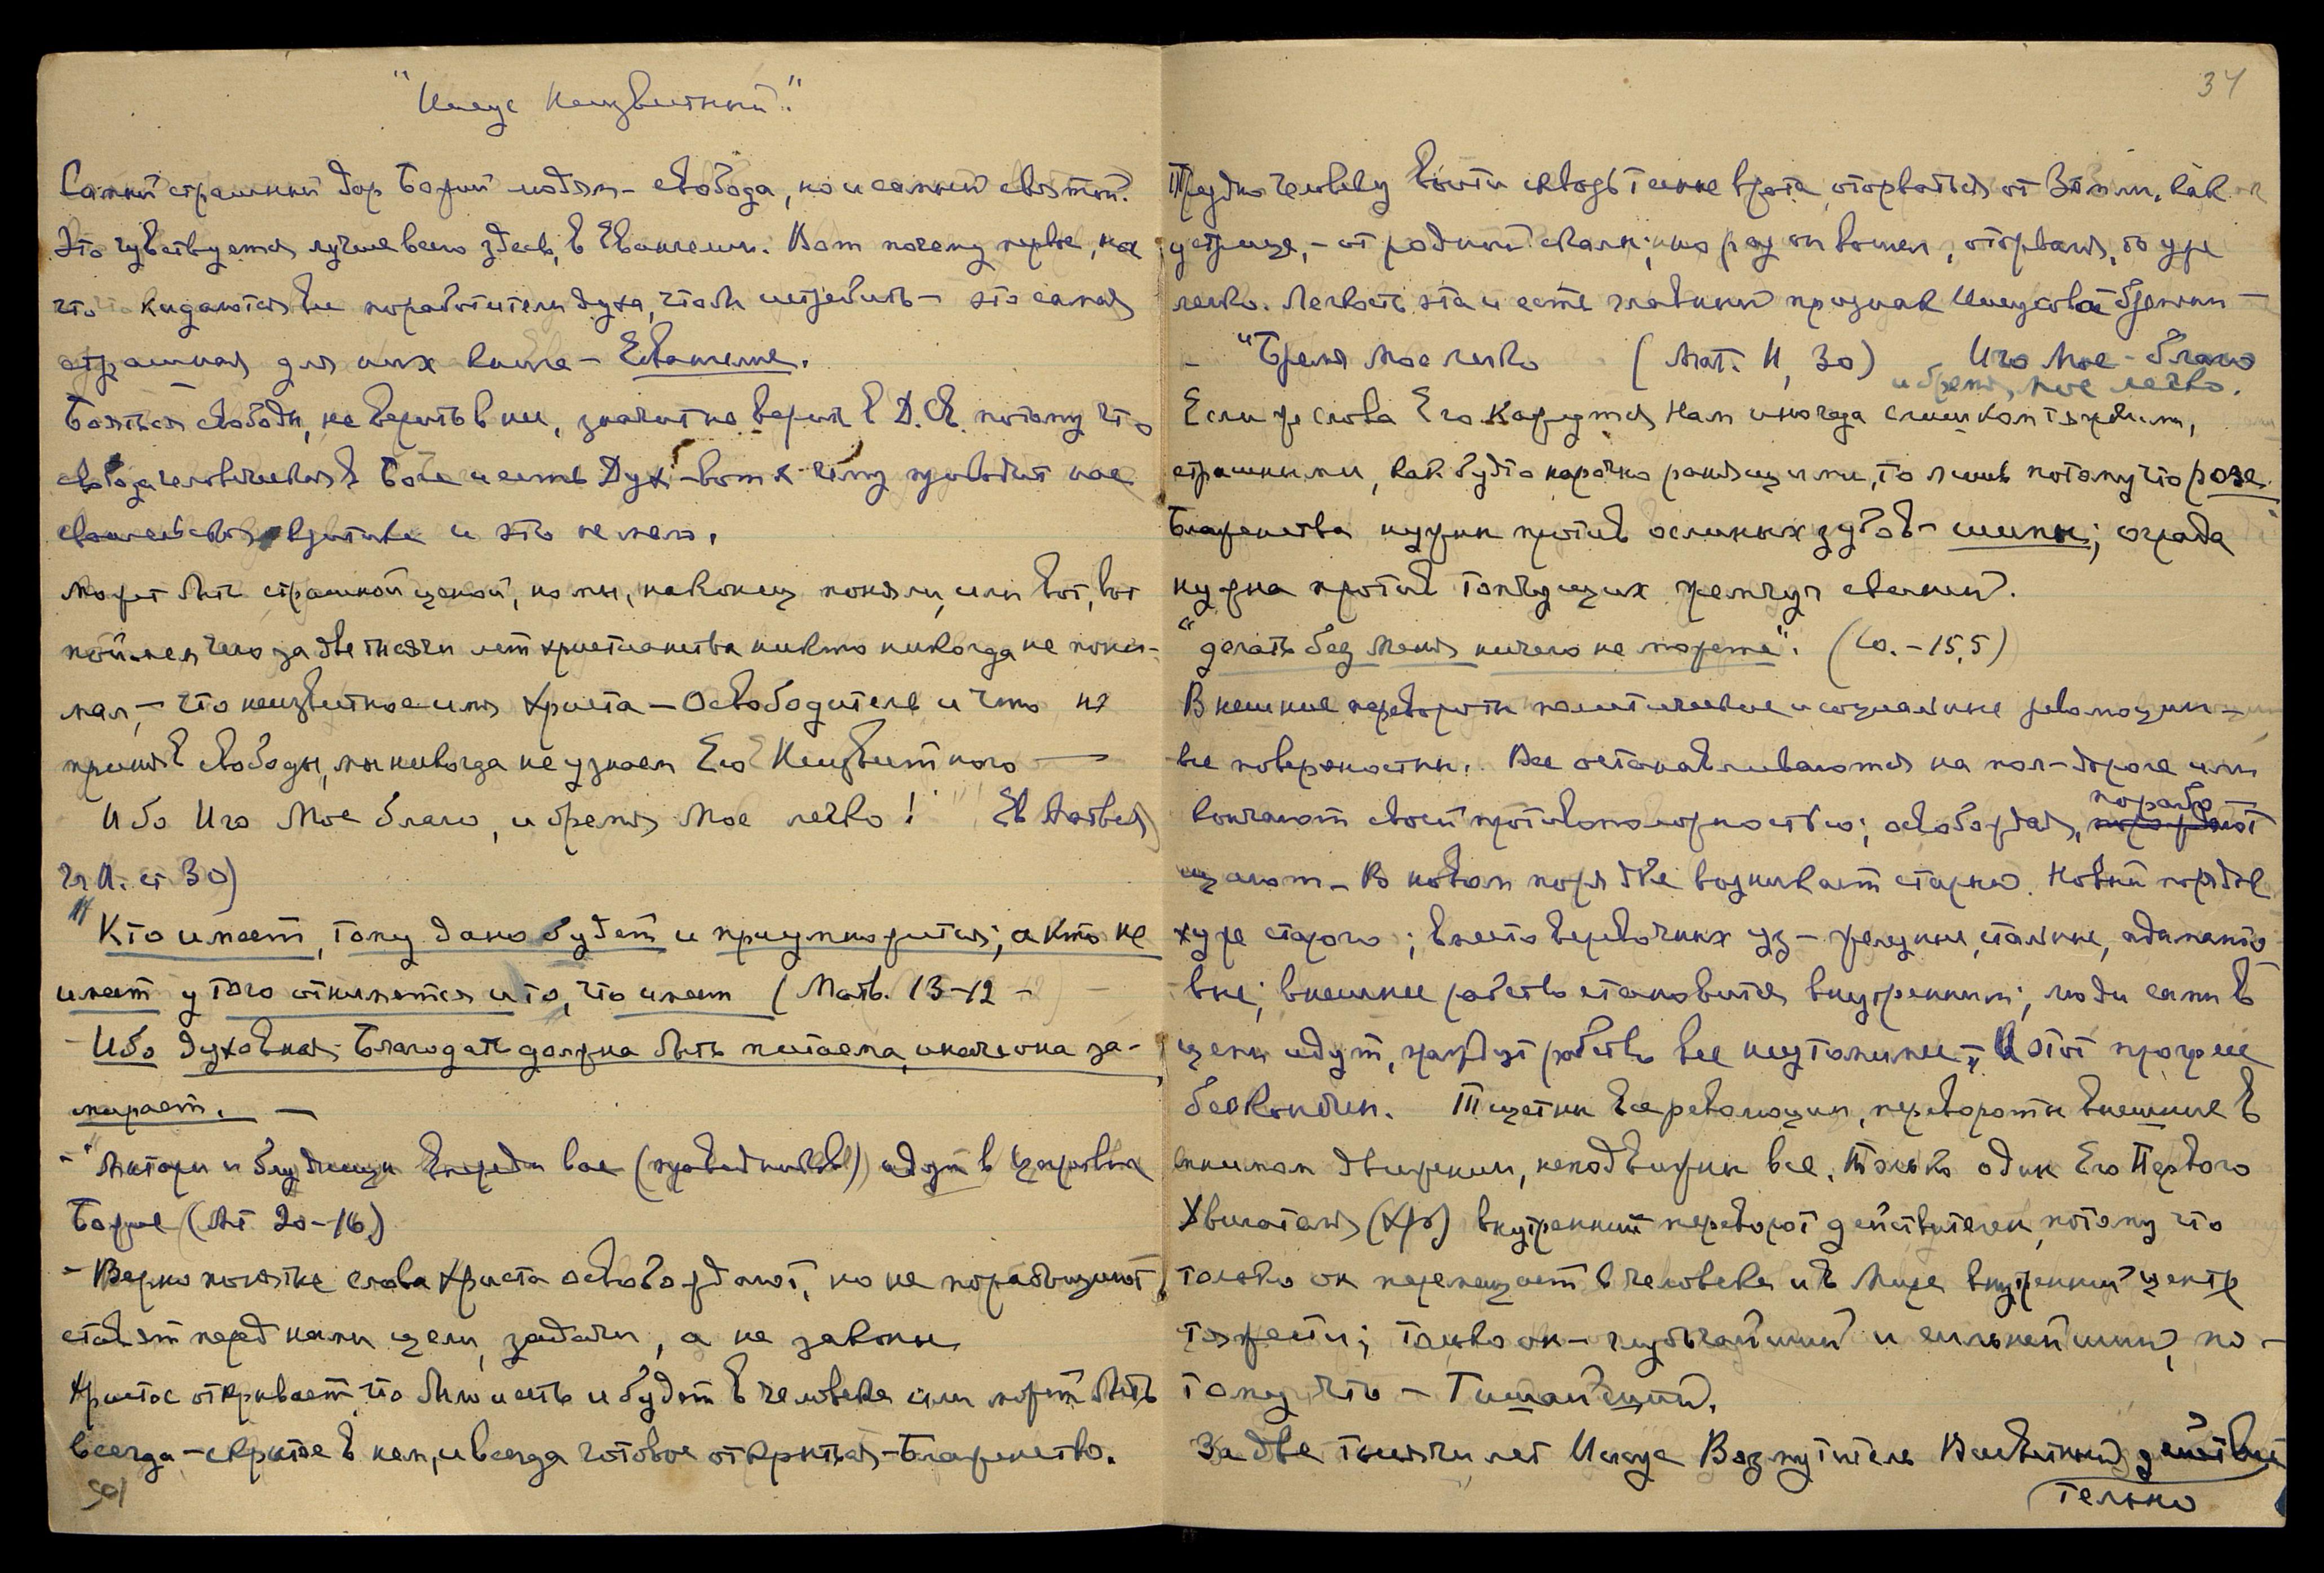 "Иисус Неизвестный."
Самый страшный дар Божий людям - свобода, но и самый святой.
Это чувствуется лучше всего здесь, в Евангелии. Вот почему первое, на
что кидаются все поработители духа, чтоб истребить - это самая
страшная для них книга - Евангелие.
Бояться свободы, не верить в нее, значит не верить в Д. Св. потому что
свобода человеческая в Боге и есть Дух - вот к чему приводит нас
евангельская критика и это не мало.
Может быть страшной ценой, но мы, наконец поняли, или вот, вот
поймем чего за две тысячи лет христианства никто никогда не пони-
мал, - что неизвестное имя Христа - Освободитель и что не
приняв свободы, мы никогда не узнаем Его Неизвестного —
Ибо Иго Мое благо, и бремя Мое легко! Ев Матвея
гл 11. ст 30)
"Кто имеет, тому дано будет и приумножится; а кто не
имеет у того отнимется и то, что имеет (Матв. 13-12 -
- Ибо духовная Благодать должна быть питаема, иначе она за-
мирает. —
- "Мытари и блудницы впереди вас (праведников) идут в царствие
Божие (Мт 20-16)
- Верно понятые слова Христа освобождают, но не порабощают
ставят перед нами цели, задачи, а не законы
Христос открывает, что было и есть и будет в человеке или может быть
всегда - скрытое в нем, и всегда готовое открыться - Блаженство.
501
34
Трудно человеку войти сквозь тесные врата, оторваться от Земли, как
устрице, - от родной скалы; но раз он вошел, оторвался, то уже
легко. Легкость эта и есть главный признак Иисусова бремени -
- "Бремя Мое легко (Мат. 11, 30) Иго Мое - благо
и бремя мое легко.
Если же слова Его кажутся нам иногда слишком тяжкими,
страшными, как будто нарочно ранящими, то лишь потому что розе
Блаженства нужны против ослиных зубов - шипы; ограда
нужна против топчущих жемчуг свиней.
"делать без Меня ничего не можете". (Ио. - 15,5)
Внешние перевороты политические и социальные революции -
все поверхностны. Все останавливаются на пол-дороге или
кончают своей противоположностью; освобождая, порабо-
щают - В новом порядке возникает старый. Новый порядок
хуже старого; вместо веревочных уз - железные, стальные, адаманто-
вые; внешнее рабство становится внутренним; люди сами в
цепи идут, жаждут рабства все неутолимее - "И этот прогресс
бесконечен. Тщетны все революции, перевороты внешние в
мнимом движении, неподвижны все. Только один Его Первого
Двигателя (Хр) внутренний переворот действителен, потому что
только он перемещает в человеке и в Мире внутренний центр
тяжести; только он - глубочайший и сильнейший, по-
тому что - Тишайший.
За две тысячи лет Иисус Возмутитель Всесветный действи
тельно